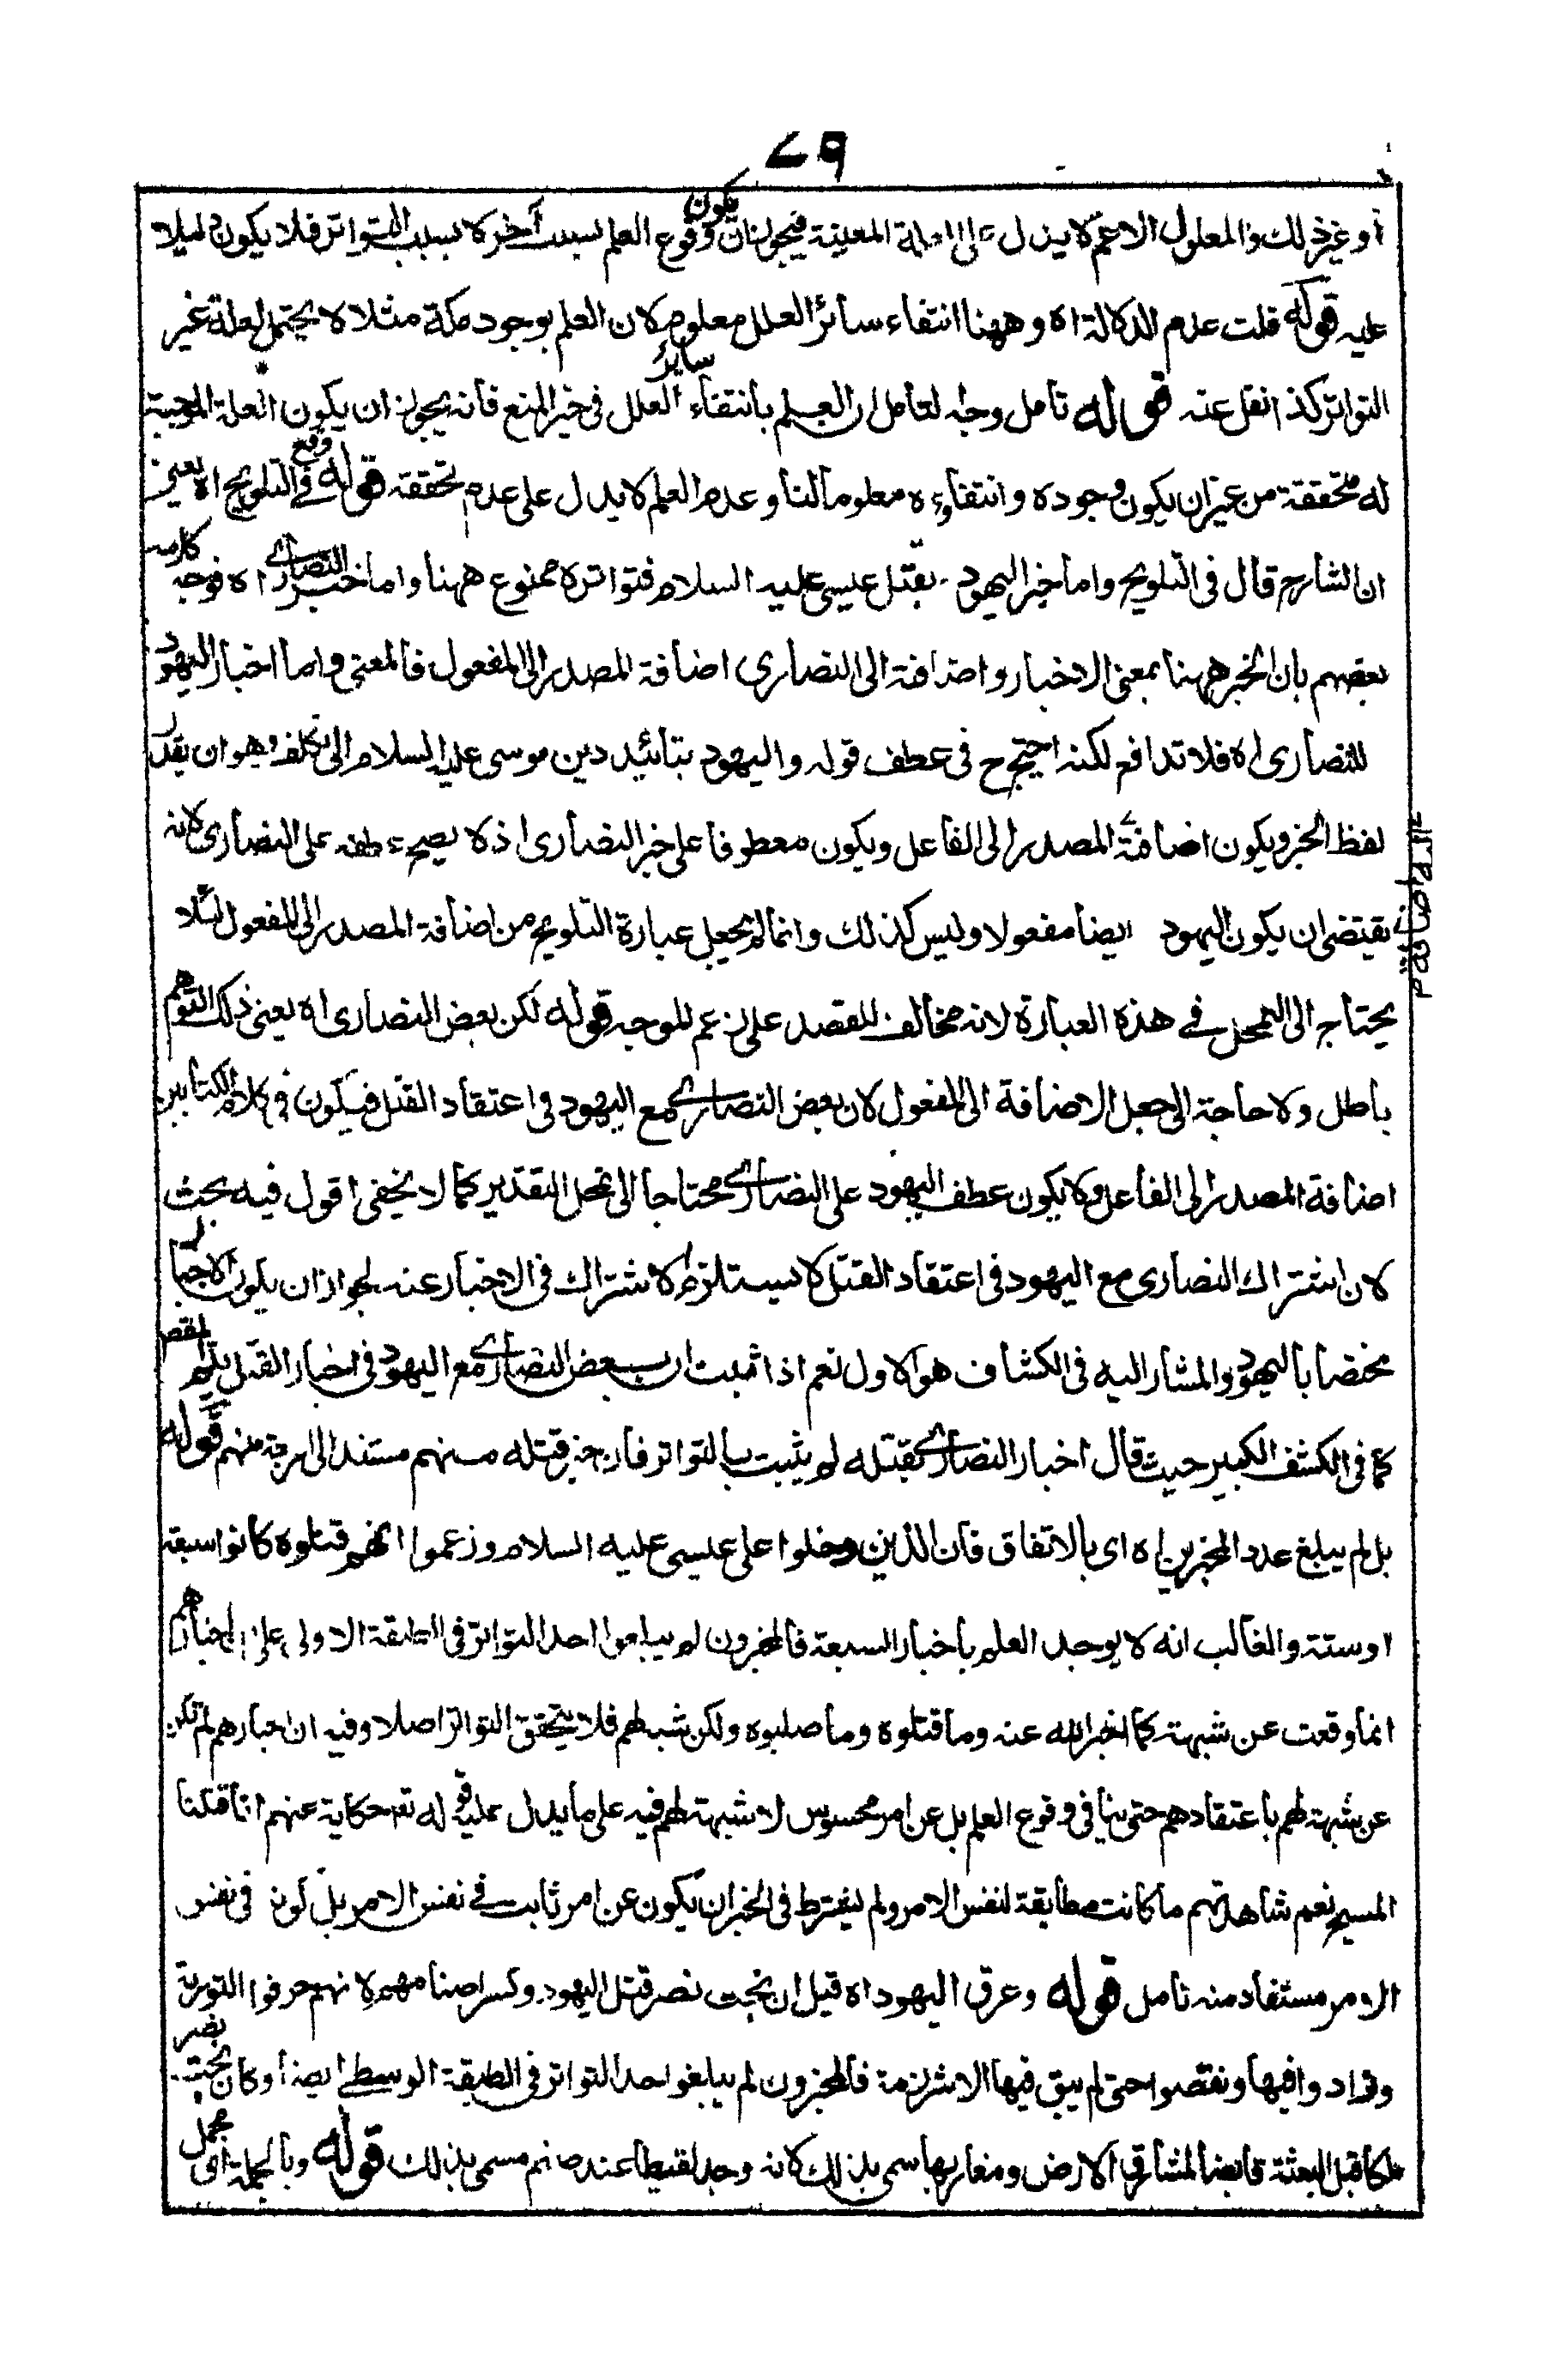 ٧٩
أو غير ذلك والمعلول الاعم لا يدل على العلة المعينة فيجوز ان يكون وقوع العلم بسبب آخر لا بسبب التواتر فلا يكون دليلا
عليه قوله قلت عدم الدلالة اه وههنا انتفاء سائر العلل معلوم لان العلم بوجود مكة مثلا لا يحتمل لعلة غير
التواتر كذا نقل عنه قوله تأمل وجه لتأمل ان العلم بأنتفاء سائر العلل في خبر المنع فأنه يجوز ان يكون العلة الموجبة
له متحققة من غير ان يكون وجوده وانتفاؤه معلوما لنا وعدم العلم لا يدل على عدم تحققه قوله وقع في التلويح اه يعني
ان الشارح قال في التلويح واما خبر اليهود بقتل عيسى عليه السلام فتواتره ممنوع ههنا واما خبر النصارى اه فوجه كلامه
بعضهم بان الخبر ههنا بمعنى الاخبار واضافته الى النصارى اضافة المصدر الى المفعول فالمعنى واما اخبار اليهود
للنصارى اه فلا تدافع لكنه احتيج ح في عطف قوله واليهود بتأئيد دين موسى عليه السلام الى تكلف وهو ان يقدر
لفظ الخبر ويكون اضافة المصدر الى الفاعل ويكون معطوفا على خبر النصارى اذ لا يصح عطفه على النصارى لانه
يقتضى ان يكون اليهود ايضا مفعولا وليس كذلك وانما لم يجعل عبارة التلويح من اضافة المصدر الى المفعول لئلا
يحتاج الى التمحل في هذه العبارة لانه مخالف للقصد على زعم الموجه قوله لكن بعض النصارى اه يعنى ذلك التوهم
باطل ولا حاجة الى جعل الاضافة الى المفعول لان بعض النصارى مع اليهود في اعتقاد القتل فيكون في كلام الكتابين
اضافة المصدر الى الفاعل ولا يكون عطف اليهود على النصارى محتاجا الى تمحل التقدير كما لا يخفى اقول فيه بحث
لان اشتراك النصارى مع اليهود في اعتقاد القتل لا يستلزم الاشتراك في الاخبار عنه لجواز ان يكون الاخبار
مختصا باليهود والمشار اليه في الكشاف هو الاول نعم اذا ثبت ان بعض النصارى مع اليهود في اخبار القتل يتم المقصد
كما في الكشف الكبير حيث قال اخبار النصارى بقتله لم يثبت بالتواتر فان خبر قتله منهم مستند الى اربعة منهم قوله
بل لم يبلغ عدد المخبرين اه اى بالاتفاق فأن الذين دخلوا على عيسى عليه السلام وزعموا انهم قتلوه كانوا سبعة
او ستة والغالب انه لا يوجد العلم بأخبار السبعة فالمخبرون لم يبلغوا حد التواتر في الطبقة الاولى على ان اخبارهم
انما وقعت عن شبهة كما اخبر الله عنه وما قتلوه وما صلبوه ولكن شبه لهم فلا يتحقق التواتر اصلا وفيه ان اخبارهم لم تكن
عن شبهة لهم باعتقادهم حتى ينافي وقوع العلم بل عن امر محسوس لا شبهة لهم فيه على ما يدل عليه قوله تعـ حكاية عنهم انا قتلنا
المسيح نعم شاهدتهم ما كانت مطابقة لنفس الامر ولم يشترط في الخبر ان يكون عن امر ثابت في نفس الامر بل كونه في نفس
الامر مستفاد منه تأمل قوله وعرق اليهود اه قيل ان بخت نصر قتل اليهود وكسر اصنامهم لانهم حرفوا التورية
وزادوا فيها ونقصوا حتى لم يبق فيها الا شرذمة فالمخبرون لم يبلغوا حد التواتر في الطبقة الوسطى ايضا وكان بخت نصر
ملكا قبل البعثة قابضا لمشارق الارض ومغاربها سمى بذلك لانه وجد لقيطا عند صنم مسمى بذلك قوله وبالجملة اى مجمل
اضافة